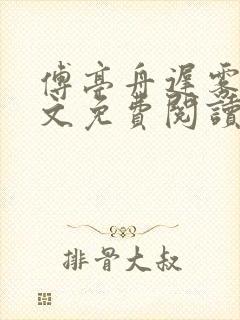 傅亭舟遲霧
文免費閱讀
排骨大叔